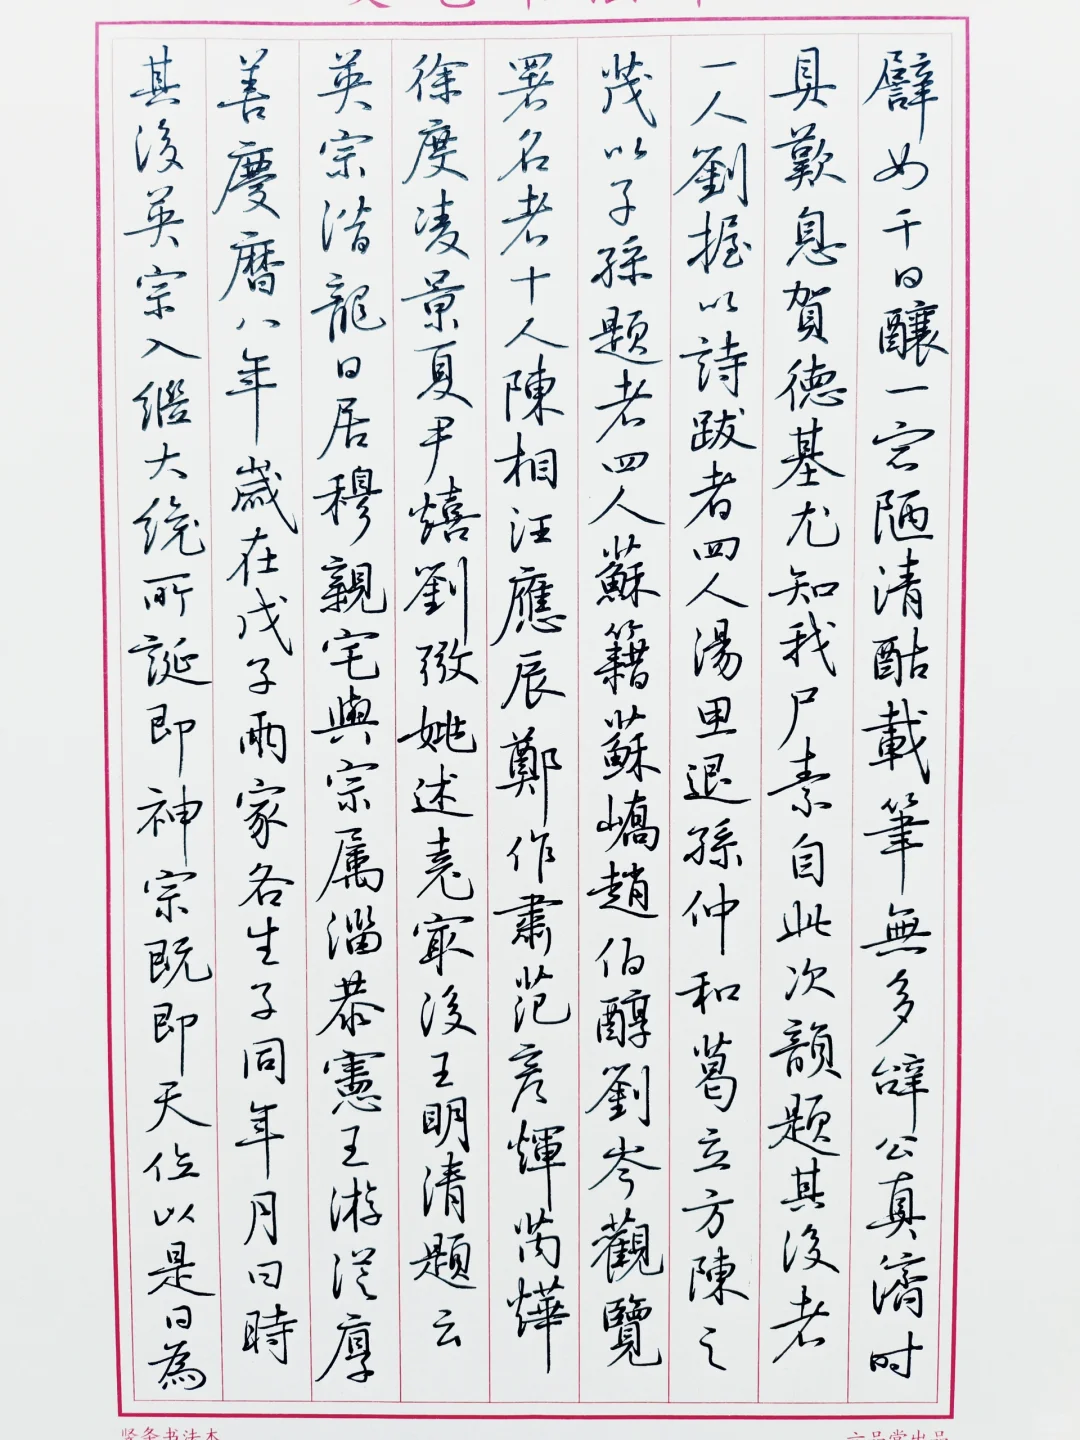 譬如千日釀一宕陋清酤載筆無多辭公真濟时
具歎息賀德基尤知我尸素自此次韻題其後者
一人劉握以詩跋者四人湯思退孫仲和葛立方陳之
茂以子孫題者四人蘇籍蘇嶠趙伯醇劉岑觀覽
署名者十人陳相汪應辰鄭作肅范彥輝芮燁
徐度凌景夏尹熺劉弥姚述堯最後王明清題云
英宗潛龍日居穆親宅與宗属淄恭憲王游從厚
善慶曆八年歲在戊子兩家各生子同年月日時
其後英宗入繼大統所誕即神宗既即天位以是日為
竖条书法本
六品堂出品